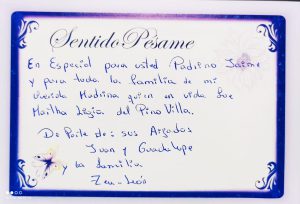 Sentido Pésame
En Especial para usted Padrino Jaime
y para toda la familia de mi
querida Madrina quien en vida fue
Martha Ligia del Pino Villa.
De Parte de: sus Aijados
Juan y Guadalupe
y la familia
Zea-León